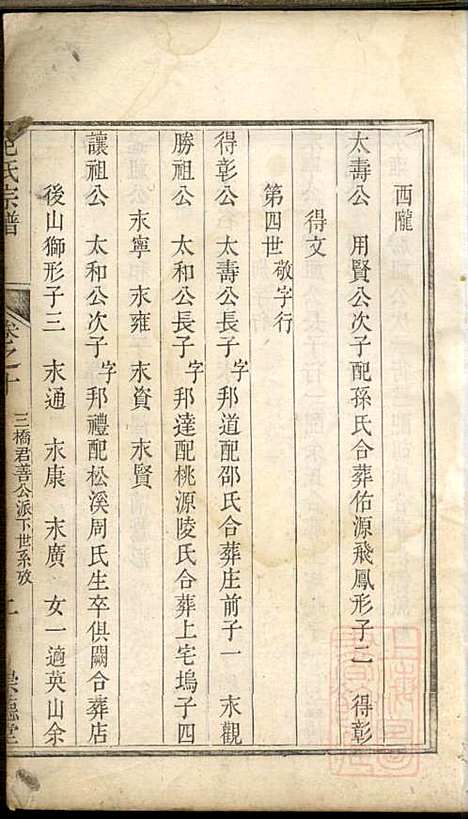 西隴
太壽公　用賢公次子配孫氏合葬佑源飛鳳形子二　得彰
得文
第四世敬字行
得彰公　太壽公長子字邦道配邵氏合葬庄前子一　永觀
勝祖公　太和公長子字邦達配桃源陵氏合葬上宅塢子四
永寧　永雍　永資　永賢
讓祖公　太和公次子字邦禮配松溪周氏生卒俱闕合葬店
後山獅形子三　永通　永康　永廣　女一適英山余
氏宗譜
卷之十
三橋君善公派下世系攷